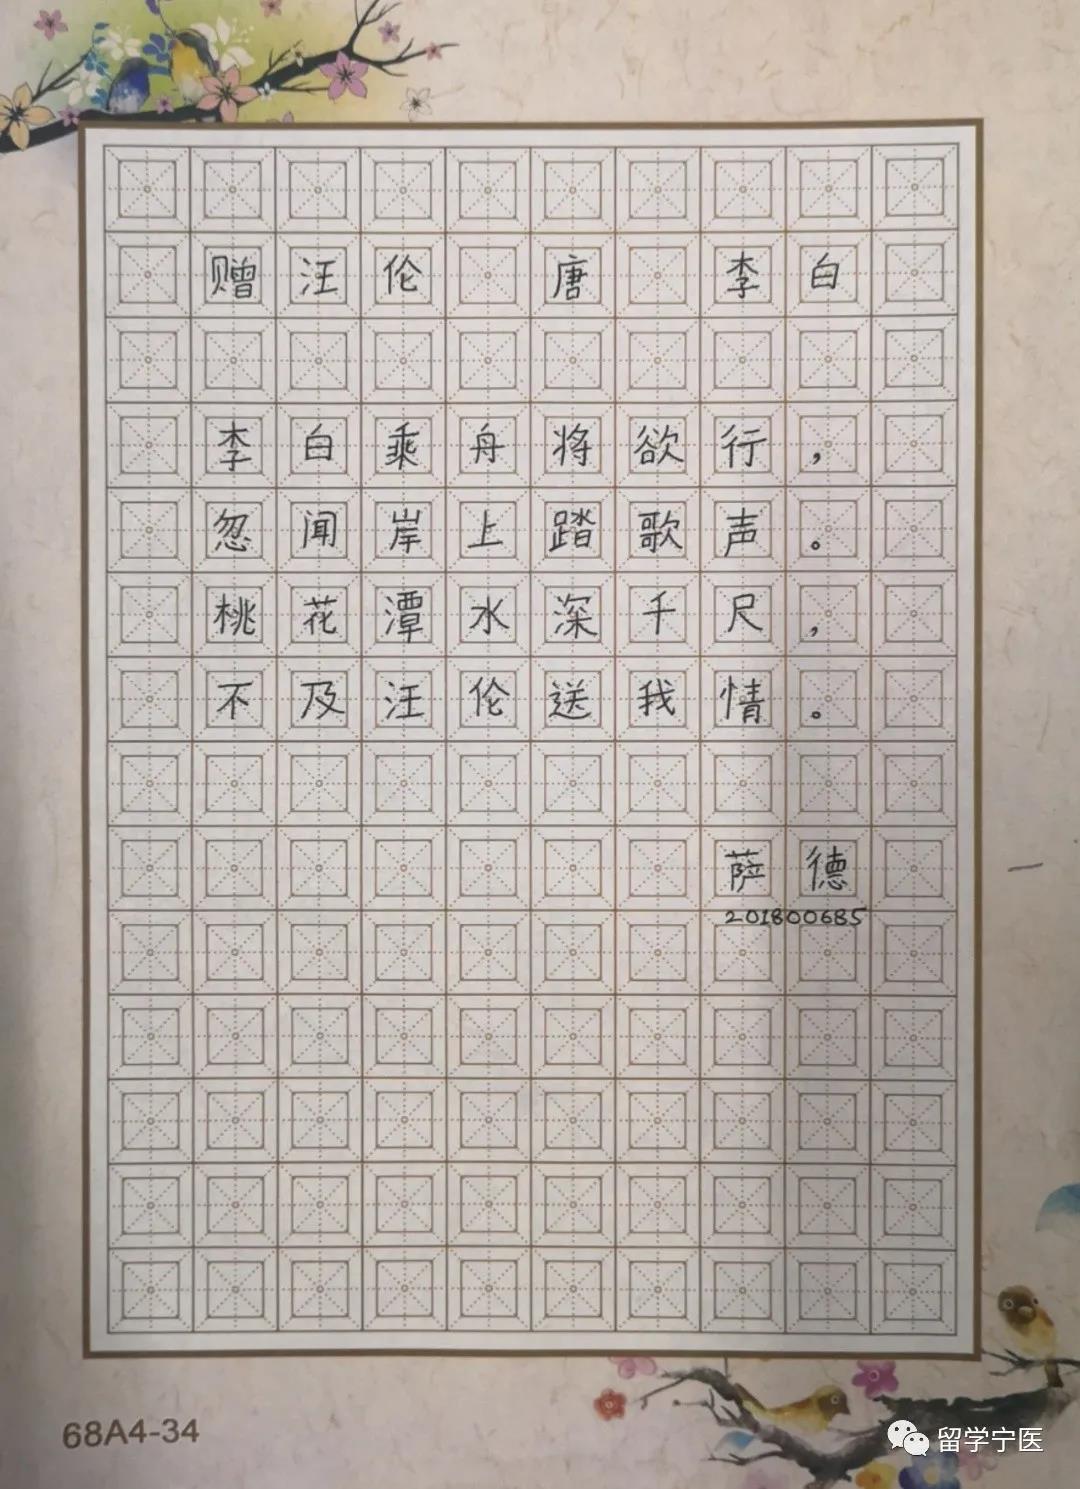 赠汪伦 唐 李白
李白乘舟将欲行，
忽闻岸上踏歌声。
桃花潭水深千尺，
不及汪伦送我情。
萨德
201800685
68A4-34
留学宁医